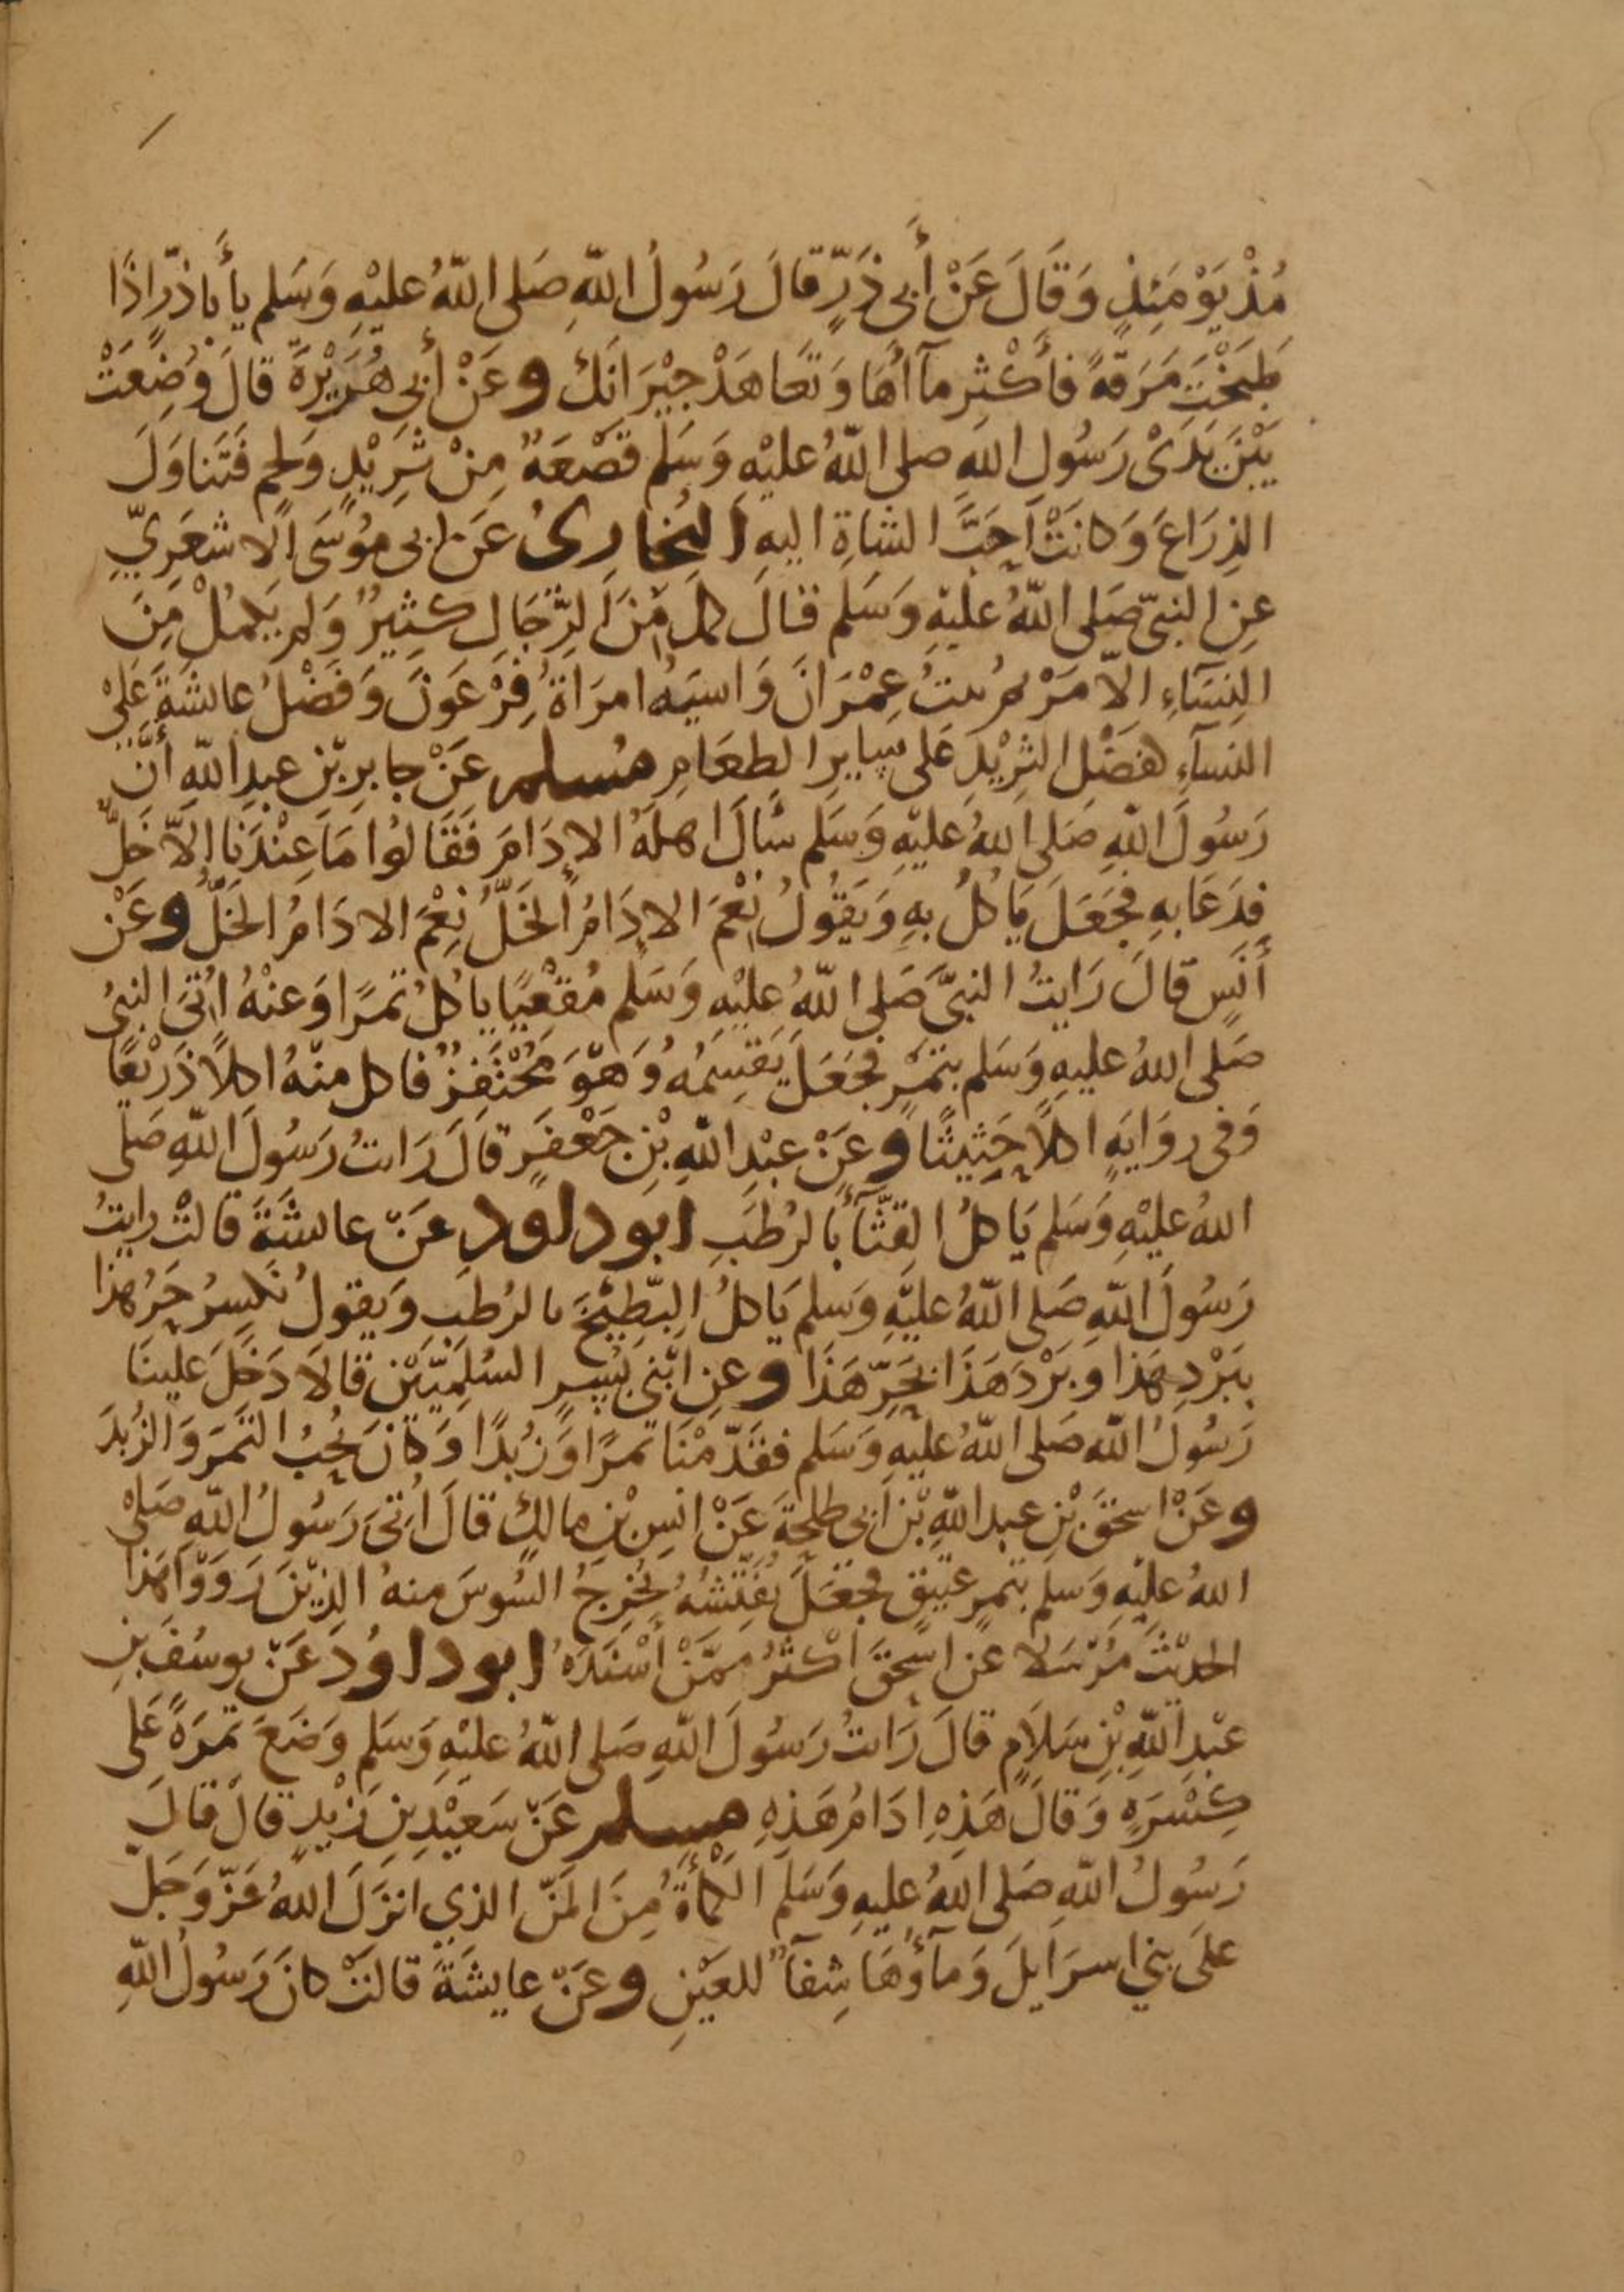 مُذْ يَوْمَئِذٍ وَقَالَ عَنْ أَبى ذَرٍّ قالَ رَسُولُ اللّٰهِ صَلى اللّٰهُ عليْهِ وَسَلم يأَباذرّ اذَا
طَبَخْتَ مَرَقَةً فأَكْثِر مآأَهَا وَتَعَاهَدْ جيْرَانَكَ وعَنْ أَبى هُرَيْرَةَ قالَ وُضِعَتْ
بَيْنَ يَدَىْ رَسُولِ اللهِ صلى اللّٰهُ عليْهِ وَسَلم قَصْعَةٌ مِنْ ثَرِيْدٍ وَلحمٍ فَتَناوَلَ
الذِرَاعَ وَكانَتْ اَحَبَّ الشاةِ اليهِ البُخارِىُ عَن ابى مُوسَى الاشعَرِيِّ
عنِ النبىّ صَلى اللّٰهُ عليْهِ وَسَلم قالَ كملَ مِنَ الرِّجَالِ كثِيرٌ وَلم يَكمُلْ مِنَ
النِسَآءِ الاّ مَرْيم بنتُ عِمْرَانَ وَاسيَهُ امرَاةُ فِرْعَوْنَ وَفَضْلُ عائشَةَ عَلىْ
النسآءِ كفَضْلِ الثرِيْدِ عَلى سايرِ الطعَامِ مُسلم عَنْ جابرِ بْنِ عبدِ اللّٰهِ أنَّ
رَسُولَ اللّٰهِ صَلى اللهُ عليْهِ وَسَلم سَأَلَ اهلهُ الاِدَامَ فَقَالوُا مَا عِنْدَنا اِلاَّ خَلٌّ
فدَعَا بهِ فجَعَلَ يَاكلُ بهِ وَيَقُولُ نِعْمَ الادَامُ الخَلُّ نِعْمَ الادَامُ الخَلُّ وعَنْ
أنَسٍ قالَ رَايتُ النبىَّ صَلى اللّٰهُ عليْهِ وَسَلم مُقْعِيًا ياكُلُ تمرًا وَعنْهُ اُتىَ النبىُ
صَلى اللهُ عليهِ وَسَلم بتمْرٍ فجَعَلَ يَقسِمُهُ وَهوَ مُحْتَفِزٌ فاكل منْهُ اكلاً ذَرِيْعًا
وَفى روَايَهٍ اكلاً حَثِيثًا وعَنْ عبْدِ اللّٰهِ بْنِ جَعْفرٍ قالَ رَاىتُ رَسُولَ اللّٰهِ صَلى
اللهُ عليْهِ وَسَلم يَاكلُ القثّآَ بالرُطبِ ابو داود عَنْ عايشَةَ قالتْ رايتُ
رَسُولَ اللّٰهِ صَلى اللّٰهُ عليْهِ وَسَلم يَاكلُ البِطِيْخَ بالرُطبِ وَيقولُ نكسِرُ حَرَّ هذا
ببَرْدِ هَذا وَبرْدَ هَذَا بحَرِّ هَذَا وعنِ ابْنى بُسرٍ السُلمِيّيْنِ قالاَ دَخَلَ علينَا
رَسُولُ اللّٰه صَلى اللّٰهُ عليهِ وَسَلم فقَدّمْنا تمرًا وَزُبدًا وَكانَ يُحِبُ التمرَ وَالزُبدَ
وعَنْ اسحقَ بْنِ عبد اللّٰهِ بْن اَبى طلحَةَ عَنْ انسِ بْنِ مالكٍ قالَ اُتىَ رَسُولُ اللّٰهِ صَلىْ
اللهُ عليْهِ وَسَلم بتمرٍ عتيقٍ فجَعَلَ يُفَتِّشُهُ يُخرِجُ السُوسَ منهُ الذِيْنَ رَوَوْا هَذا
الحديْثَ مُرْسَلا عَن اسحقَ اَكثرُ ممّنْ أسْنَدَهُ ابو داوُد عَنْ يوسُفَ بْنِ
عبْدِ اللّٰهِ بْنِ سَلاَمٍ قالَ رَاىتُ رَسُولَ اللّٰهِ صَلى اللّٰهُ عليْهِ وَسَلم وَضَعَ تمرَةً عَلى
كِسْرَهٍ وَقالَ هَذِهِ ادَامُ هَذِهِ مسلم عَنْ سَعيْدِ بْنِ زَيْدٍ قالَ قالَ
رَسُولُ اللّٰهِ صَلى اللهُ عليهِ وَسَلم الكمأةُ مِنَ المنّ الذي انزَلَ اللهُ عَزّ وَجَلّ
علىَ بني اسرَايلَ وَمآؤُهَا شِفآٌ للعَيْنِ وعَنْ عايشَةَ قالتْ كانَ رَسُولُ اللّٰهِ